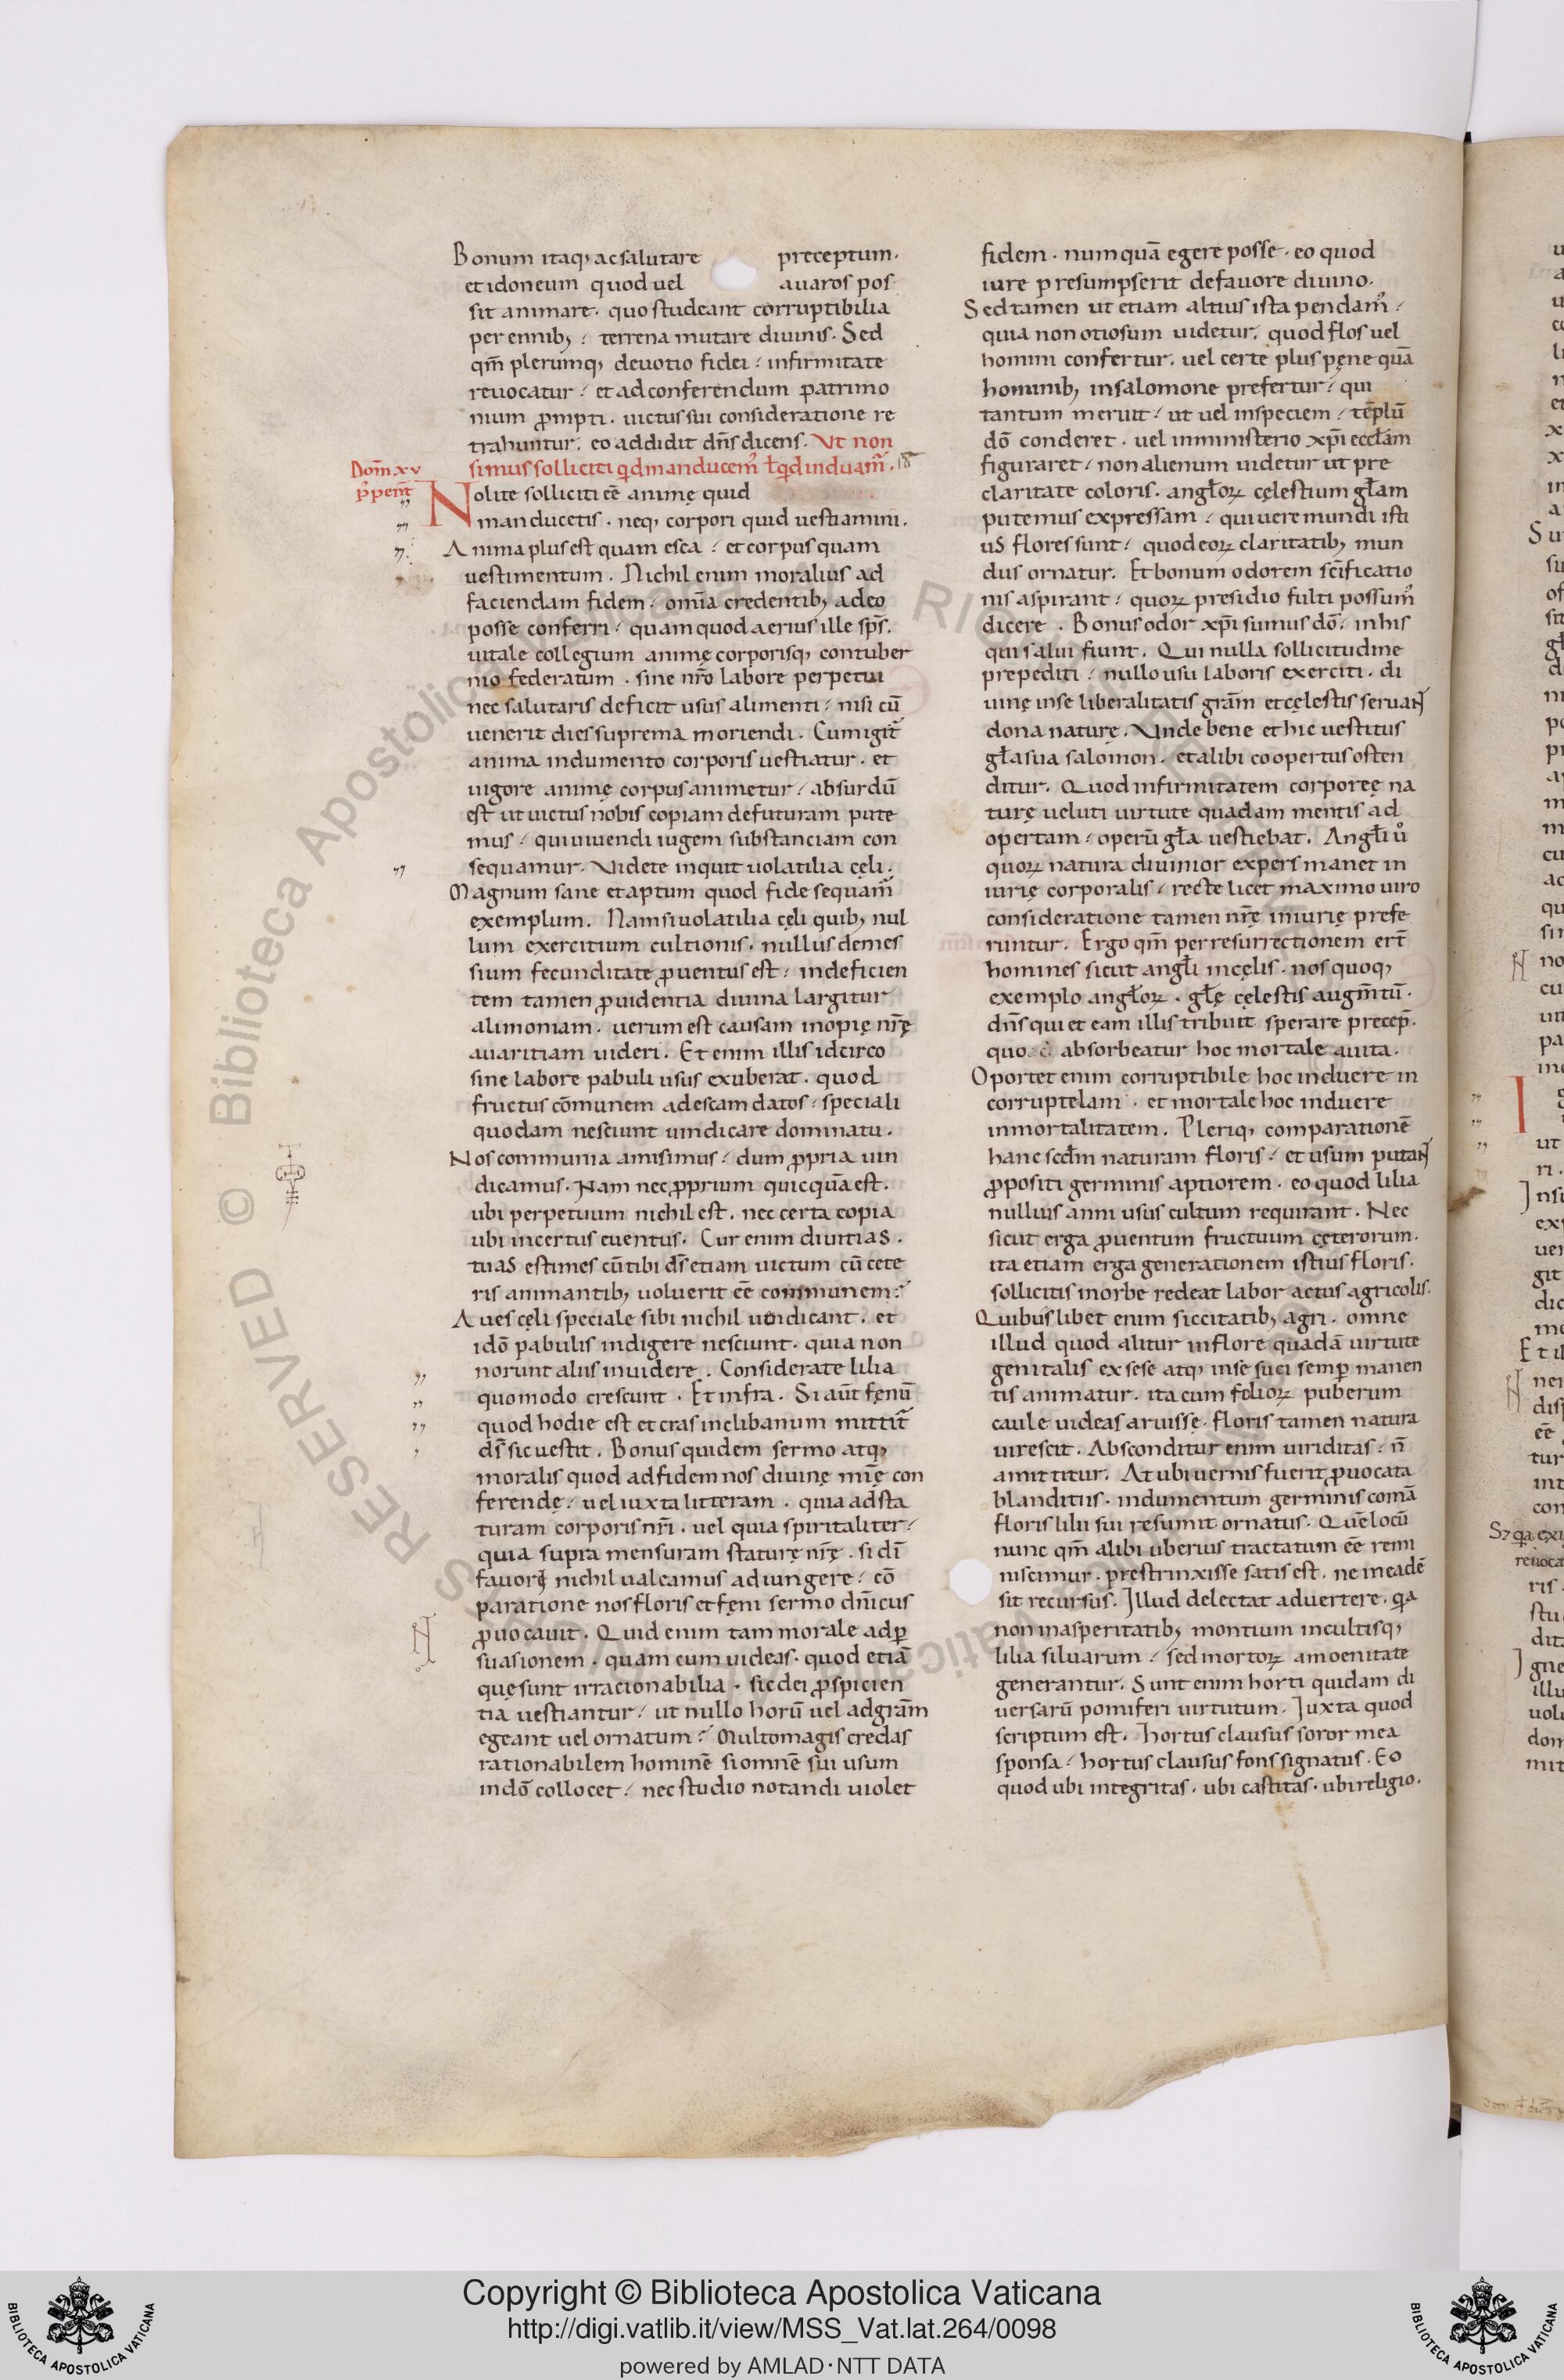 Bonum itaq; ac salutare preceptum.
et idoneum quod uel auaros pos
sit animare. quo studeant corruptibilia
perennib; terrena mutare diuinis. Sed
qm̄ plerumq; deuotio fidei infirmitate
reuocatur et ad conferendum patrimo
nium ꝓmpti. uictus sui consideratione re
trahuntur. eo addidit dn̄s dicens. Vt non
simus solliciti qd manducem᾽ ł qd induam᾽.
Dom̄ xv
p᾽ pent̄
Nolite solliciti eē animę quid
manducetis. neq; corpori quid uestiamini.
Anima plus est quam esca et corpus quam
uestimentum. Nichil enim moralius ad
faciendam fidem omīa credentib; a deo
posse conferri quam quod aerius ille sp̄s.
uitale collegium animę corporisq; contuber
nio federatum. sine nr̄o labore perpetui
nec salutaris deficit usus alimenti nisi cū
uenerit dies suprema moriendi. Cum igit᾽
anima indumento corporis uestiatur. et
uigore animę corpus animetur absurdū
est ut uictus nobis copiam defuturam pute
mus qui uiuendi iugem substanciam con
sequamur. Videte inquit uolatilia cęli.
Magnum sane et aptum quod fide sequam᾽
exemplum. Nam si uolatilia cęli quib; nul
lum exercitium cultionis. nullus demes
sium fecunditate ꝓuentus est indeficien
tem tamen ꝓuidentia diuina largitur
alimoniam. uerum est causam inopię nr̄ę
auaritiam uideri. Et enim illis idcirco
sine labore pabuli usus exuberat. quod
fructus cōmunem ad escam datos speciali
quodam nesciunt uindicare dominatu.
Nos communia amisimus dum ꝓpria uin
dicamus. Nam nec ꝓprium quicquā est.
ubi perpetuum nichil est. nec certa copia
ubi incertus euentus. Cur enim diuitias.
tuas estimes cū tibi ds̄ etiam uictum cū cete
ris animantib; uoluerit eē communem?
Aues cęli speciale sibi nichil uendicant. et
idō pabulis indigere nesciunt. quia non
norunt aliis inuidere. Considerate lilia
quomodo crescunt. Et infra. Si aūt fęnū
quod hodie est et cras in clibanum mittit᾽
ds̄ sic uestit. Bonus quidem sermo atq;
moralis quod ad fidem nos diuinę mīę con
ferendę uel iuxta litteram. quia ad sta
turam corporis nr̄i. uel quia spiritaliter
quia supra mensuram staturę nr̄ę. si dī
fauore nichil ualeamus adiungere cō
paratione nos floris et fęni sermo dn̄icus
ꝓuocauit. Quid enim tam morale ad ꝑ
suasionem. quam cum uideas. quod etiā
quę sunt irracionabilia. sic dei ꝓspicien
tia uestiantur ut nullo horū uel ad grām
egeant uel ornatum? Multo magis credas
rationabilem hominē si omnē sui usum
in dō collocet nec studio notandi uiolet
fidem. numquā egere posse. eo quod
iure presumpserit de fauore diuino.
Sed tamen ut etiam altius ista pendam᾽
quia non otiosum uidetur. quod flos uel
homini confertur. uel certe plus pęne quā
hominib; in salomone prefertur qui
tantum meruit ut uel in speciem tēplū
dō conderet. uel in ministerio xp̄i eccłam
figuraret non alienum uidetur ut pre
claritate coloris. angłoꝝ cęlestium głam
putemus expressam qui uere mundi isti
us flores sunt quod eoꝝ claritatib; mun
dus ornatur. Et bonum odorem scīficatio
nis aspirant quoꝝ presidio fulti possum᾽
dicere. Bonus odor xp̄i sumus dō in his
qui salui fiunt. Qui nulla sollicitudine
prepediti nullo usu laboris exerciti. di
uinę in se liberalitatis grām et cęlestis seruant
dona naturę. Vnde bene et hic uestitus
gła sua salomon. et alibi coopertus osten
ditur. Quod infirmitatem corporeę na
turę ueluti uirtute quadam mentis ad
opertam operū gła uestiebat. Angłi ů
quoꝝ natura diuinior expers manet in
iurię corporalis recte licet maximo uiro
consideratione tamen nr̄ę iniurię prefe
runtur. Ergo qm̄ per resurrectionem ert̄
homines sicut angłi in cęlis. nos quoq;
exemplo angłoꝝ. głę cęlestis augm̄tū.
dn̄s qui et eam illis tribuit sperare precep̄.
quo absorbeatur hoc mortale a uita.
Oportet enim corruptibile hoc induere in
corruptelam. et mortale hoc induere
inmortalitatem. Pleriq; comparationē
hanc scdm naturam floris et usum putant
ꝓpositi germinis aptiorem. eo quod lilia
nullius anni usus cultum requirant. Nec
sicut erga ꝓuentum fructuum cęterorum.
ita etiam erga generationem istius floris.
sollicitis in orbe redeat labor actus agricolis.
Quibuslibet enim siccitatib; agri. omne
illud quod alitur in flore quadā uirtute
genitalis ex sese atq; in se suci semꝑ manen
tis animatur. ita cum folioꝝ puberum
caule uideas aruisse. floris tamen natura
uirescit. Absconditur enim uiriditas n̄
amittitur. At ubi uernis fuerit ꝓuocata
blanditiis. indumentum germinis comā
floris lilii sui resumit ornatus. Quē locū
nunc qm̄ alibi uberius tractatum eē remi
niscimur. prestrinxisse satis est. ne in eadē
sit recursus. Illud delectat aduertere. qa
non in asperitatib; montium incultisq;
lilia siluarum sed in ortoꝝ amoenitate
generantur. Sunt enim horti quidam di
uersarū pomiferi uirtutum. Iuxta quod
scriptum est. Hortus clausus soror mea
sponsa hortus clausus fons signatus. Eo
quod ubi integritas. ubi castitas. ubi religio.
RESERVED © Biblioteca Apostolica Vaticana
Copyright © Biblioteca Apostolica Vaticana
http://digi.vatlib.it/view/MSS_Vat.lat.264/0098
powered by AMLAD·NTT DATA
BIBLIOTECA APOSTOLICA VATICANA
BIBLIOTECA APOSTOLICA VATICANA